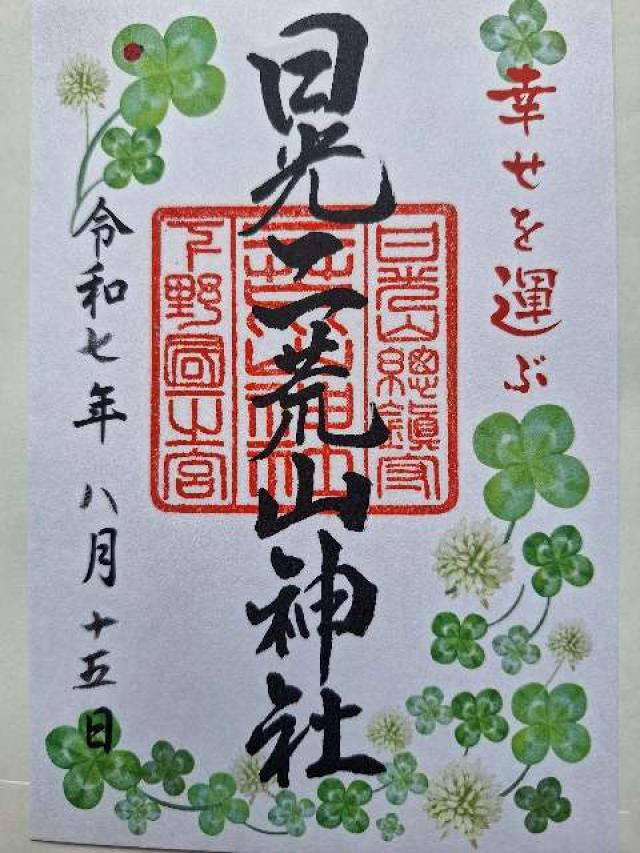 幸せを運ぶ
日光二荒山神社
日光山總鎮守
下野國一之宮
令和七年 八月十五日